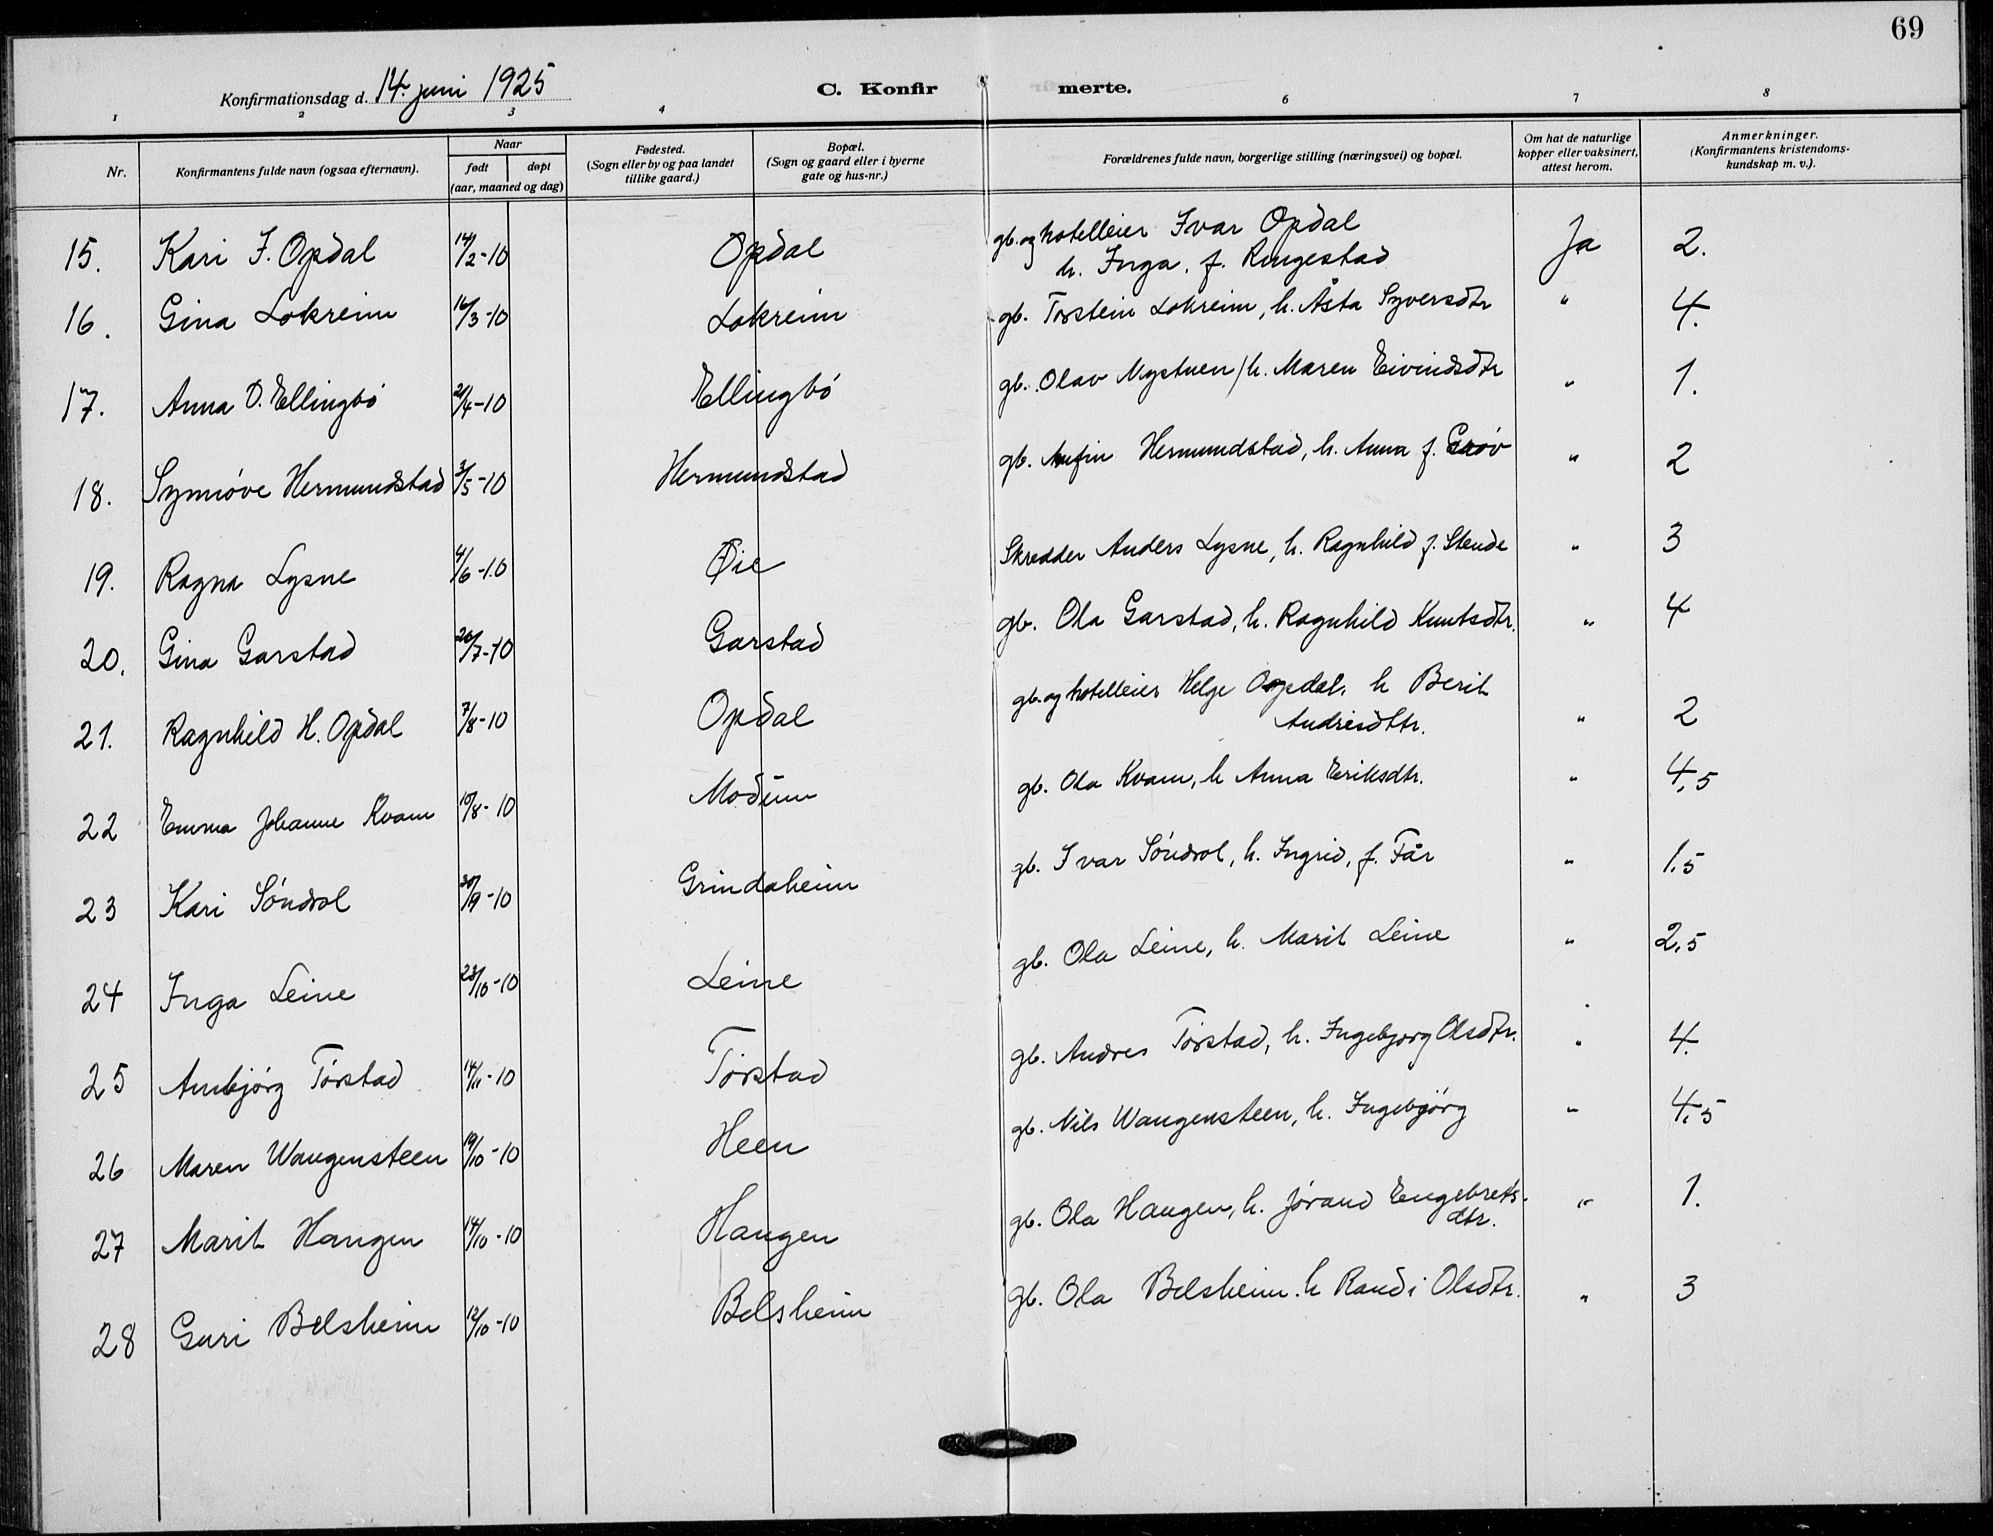 69
Konfirmationsdag d. 14. juni 1925 C. Konfir merte.
1 2 3 4 6 7 8
Nr. Konfirmantens fulde navn (ogsaa efternavn). Naar født døpt (aar, maaned og dag) Fødested. (Sogn eller by og paa landet tillike gaard.) Bopæl. (Sogn og gaard eller i byerne gate og hus-nr.) Forældrenes fulde navn, borgerlige stilling (næringsvei) og bopæl. Om hat de naturlige kopper eller vaksinert, attest herom. Anmerkninger. (Konfirmantens kristendoms- kundskap m. v.).
15. Kari I. Opdal 14/2-10 Opdal gb. og hotelleier Ivar Opdal Ja 2.
h. Inga. f. Ringestad
16. Gina Lokreim 16/3-10 Lokreim gb. Torstein Lokreim, h. Åsta Syversdtr " 4.
17. Anna O. Ellingbó 21/4-10 Ellingbó gb. Olav Nystuen / h. Maren Eivindsdtr " 1.
18. Synnóve Hermundstad 3/5-10 Hermundstad gb. Anfin Hermundstad, h. Anna f. Gróv " 2
19. Ragna Lysne 4/6-10 Øie Skredder Anders Lysne, h. Ragnhild f. Stende " 3
20. Gina Garstad 20/7-10 Garstad gb. Ola Garstad, h. Ragnhild Knutsdtr. " 4
21. Ragnhild H. Opdal 7/8-10 Opdal gb. og hotelleier Helge Opdal. h Berit " 2
Andrisdttr.
22 Emma Johanne Kvam 10/8-10 Modum gb. Ola Kvam, h Anna Eriksdtr. " 4,5
23 Kari Sóndrol 30/9-10 Grindaheim gb. Ivar Sóndrol, h. Ingrid, f. Får " 1.5
24 Inga Leine 23/10-10 Leine gb. Ola Leine, h. Marit Leine " 2,5
25 Anbjórg Tórstad 14/11-10 Tórstad gb. Andres Tórstad, h. Ingebjorg Olsdtr. " 4.
26 Maren Wangensteen 19/10-10 Heen gb. Nils Wangensteen, h. Ingebjórg " 4.5
27 Marit Haugen 14/10-10 Haugen gb. Ola Haugen, h. Jórand Engebrets- " 1.
dtr.
28 Guri Belsheim 12/10-10 Belsheim gb. Ola Belsheim. h Randi Olsdtr. " 3